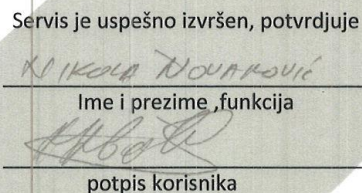 Servis je uspešno izvršen, potvrdjuje
NIKOLA NOVAKOVIĆ
Ime i prezime ,funkcija
potpis korisnika